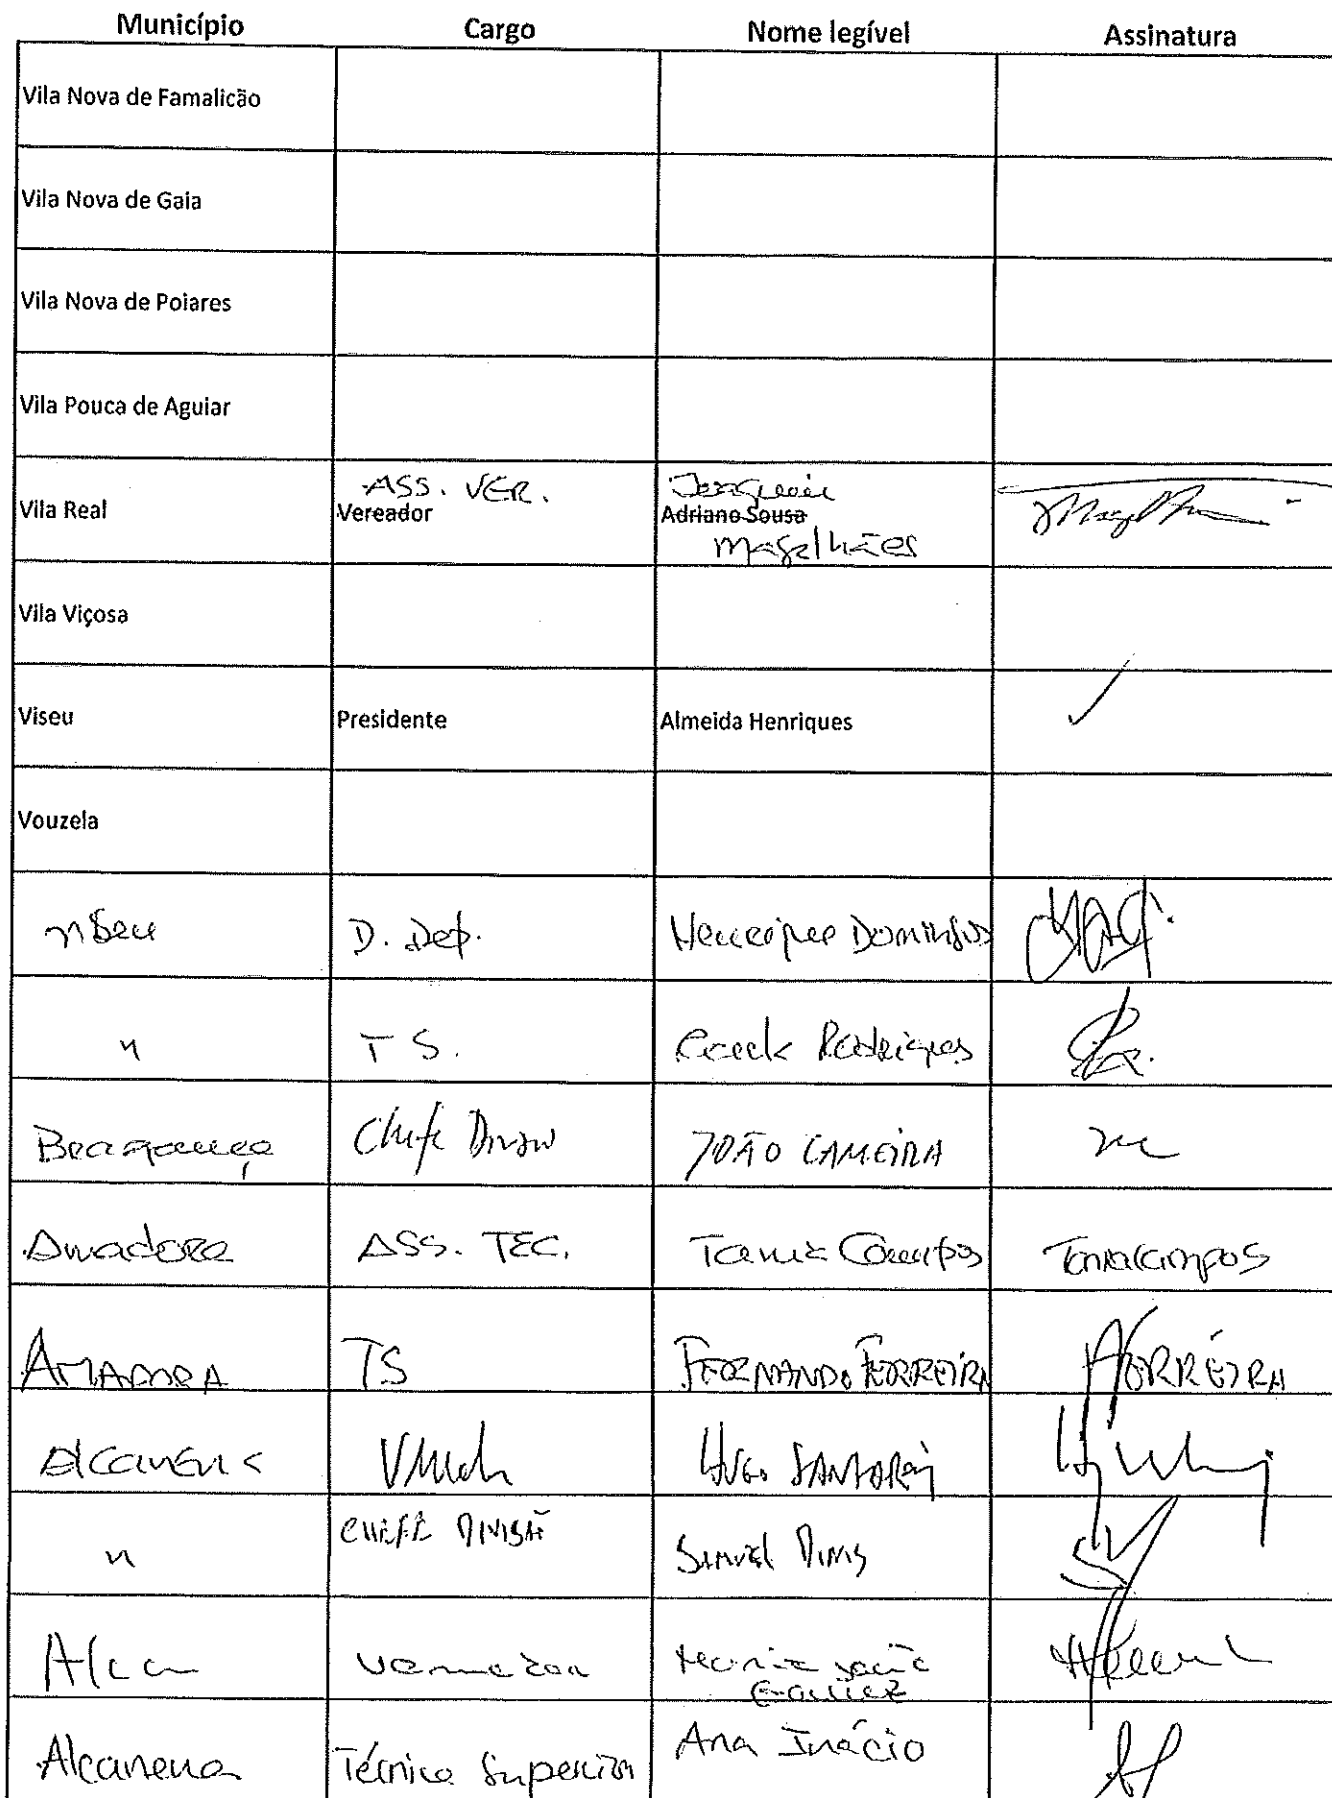 Município Cargo Nome legível Assinatura
Vila Nova de Famalicão
Vila Nova de Gaia
Vila Nova de Poiares
Vila Pouca de Aguiar
ASS. VER. Joaquim
Vila Real Vereador Adriano Sousa
Magalhães
Vila Viçosa
Viseu Presidente Almeida Henriques ✓
Vouzela
Viseu D. Dep. Henrique Domingos
" T S. Rodrigues
Bragança Chefe Divisão JOÃO CAMEIRA
Amadora ASS. TEC. Tania Campos Tania Campos
AMADORA TS FERNANDO FERREIRA FERREIRA
Alcanena HUGO SANTARÉM
" CHEFE DIVISÃO SAMUEL DINIS
Vereadora Maria João
Gomez
Alcanena Técnico Superior Ana Inácio